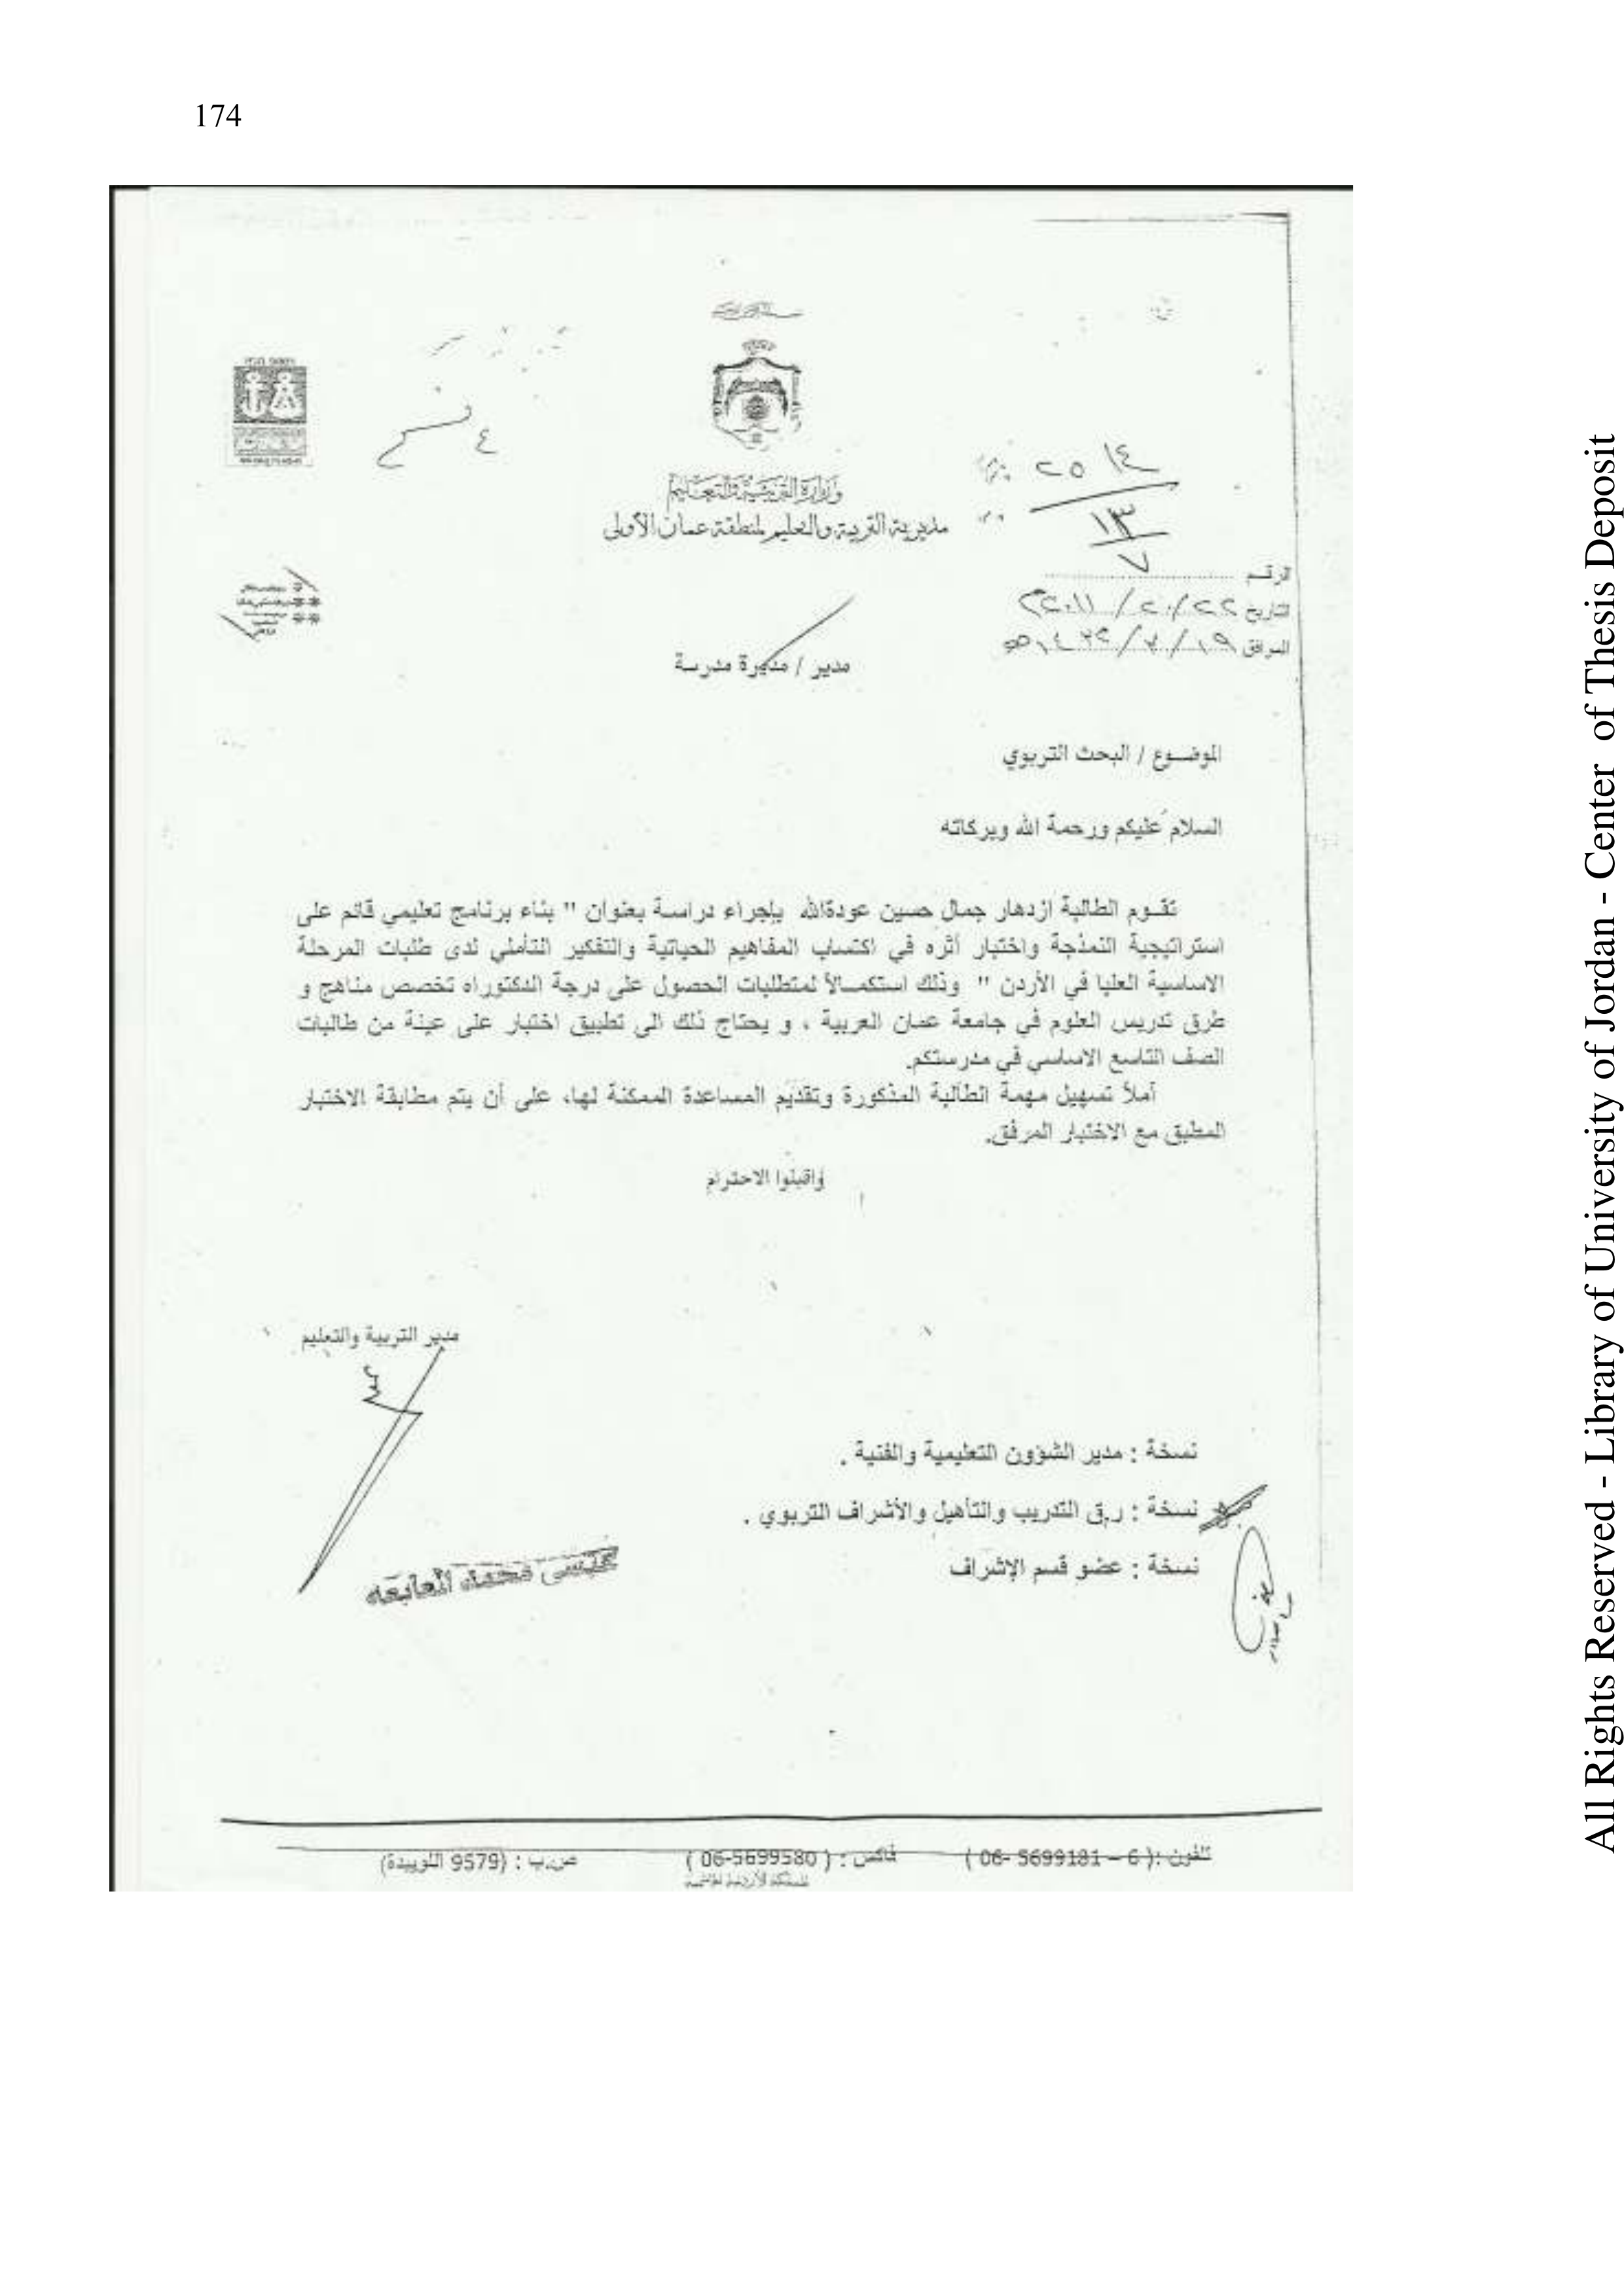 174
وزارة التربية والتعليم
مديرية التربية والتعليم لمنطقة عمان الأولى
٢٥١٤
١٣
٧
الرقم
التاريخ
الموافق
مدير / مديرة مدرسة
الموضوع / البحث التربوي
السلام عليكم ورحمة الله وبركاته
تقوم الطالبة ازدهار جمال حسين عودةالله بإجراء دراسة بعنوان " بناء برنامج تعليمي قائم على
استراتيجية النمذجة واختبار أثره في اكتساب المفاهيم الحياتية والتفكير التأملي لدى طلبات المرحلة
الاساسية العليا في الأردن " وذلك استكمالاً لمتطلبات الحصول على درجة الدكتوراه تخصص مناهج و
طرق تدريس العلوم في جامعة عمان العربية ، و يحتاج ذلك الى تطبيق اختبار على عينة من طالبات
الصف التاسع الاساسي في مدرستكم.
آملاً تسهيل مهمة الطالبة المذكورة وتقديم المساعدة الممكنة لها، على أن يتم مطابقة الاختبار
المطبق مع الاختبار المرفق.
واقبلوا الاحترام
مدير التربية والتعليم
نسخة : مدير الشؤون التعليمية والفنية .
نسخة : ر.ق التدريب والتأهيل والأشراف التربوي .
نسخة : عضو قسم الإشراف
تلفون :( 6 – 5699181 -06 ) فاكس : ( 5699580-06 ) ص.ب : (9579 اللويبدة)
المملكة الأردنية الهاشمية
All Rights Reserved - Library of University of Jordan - Center of Thesis Deposit